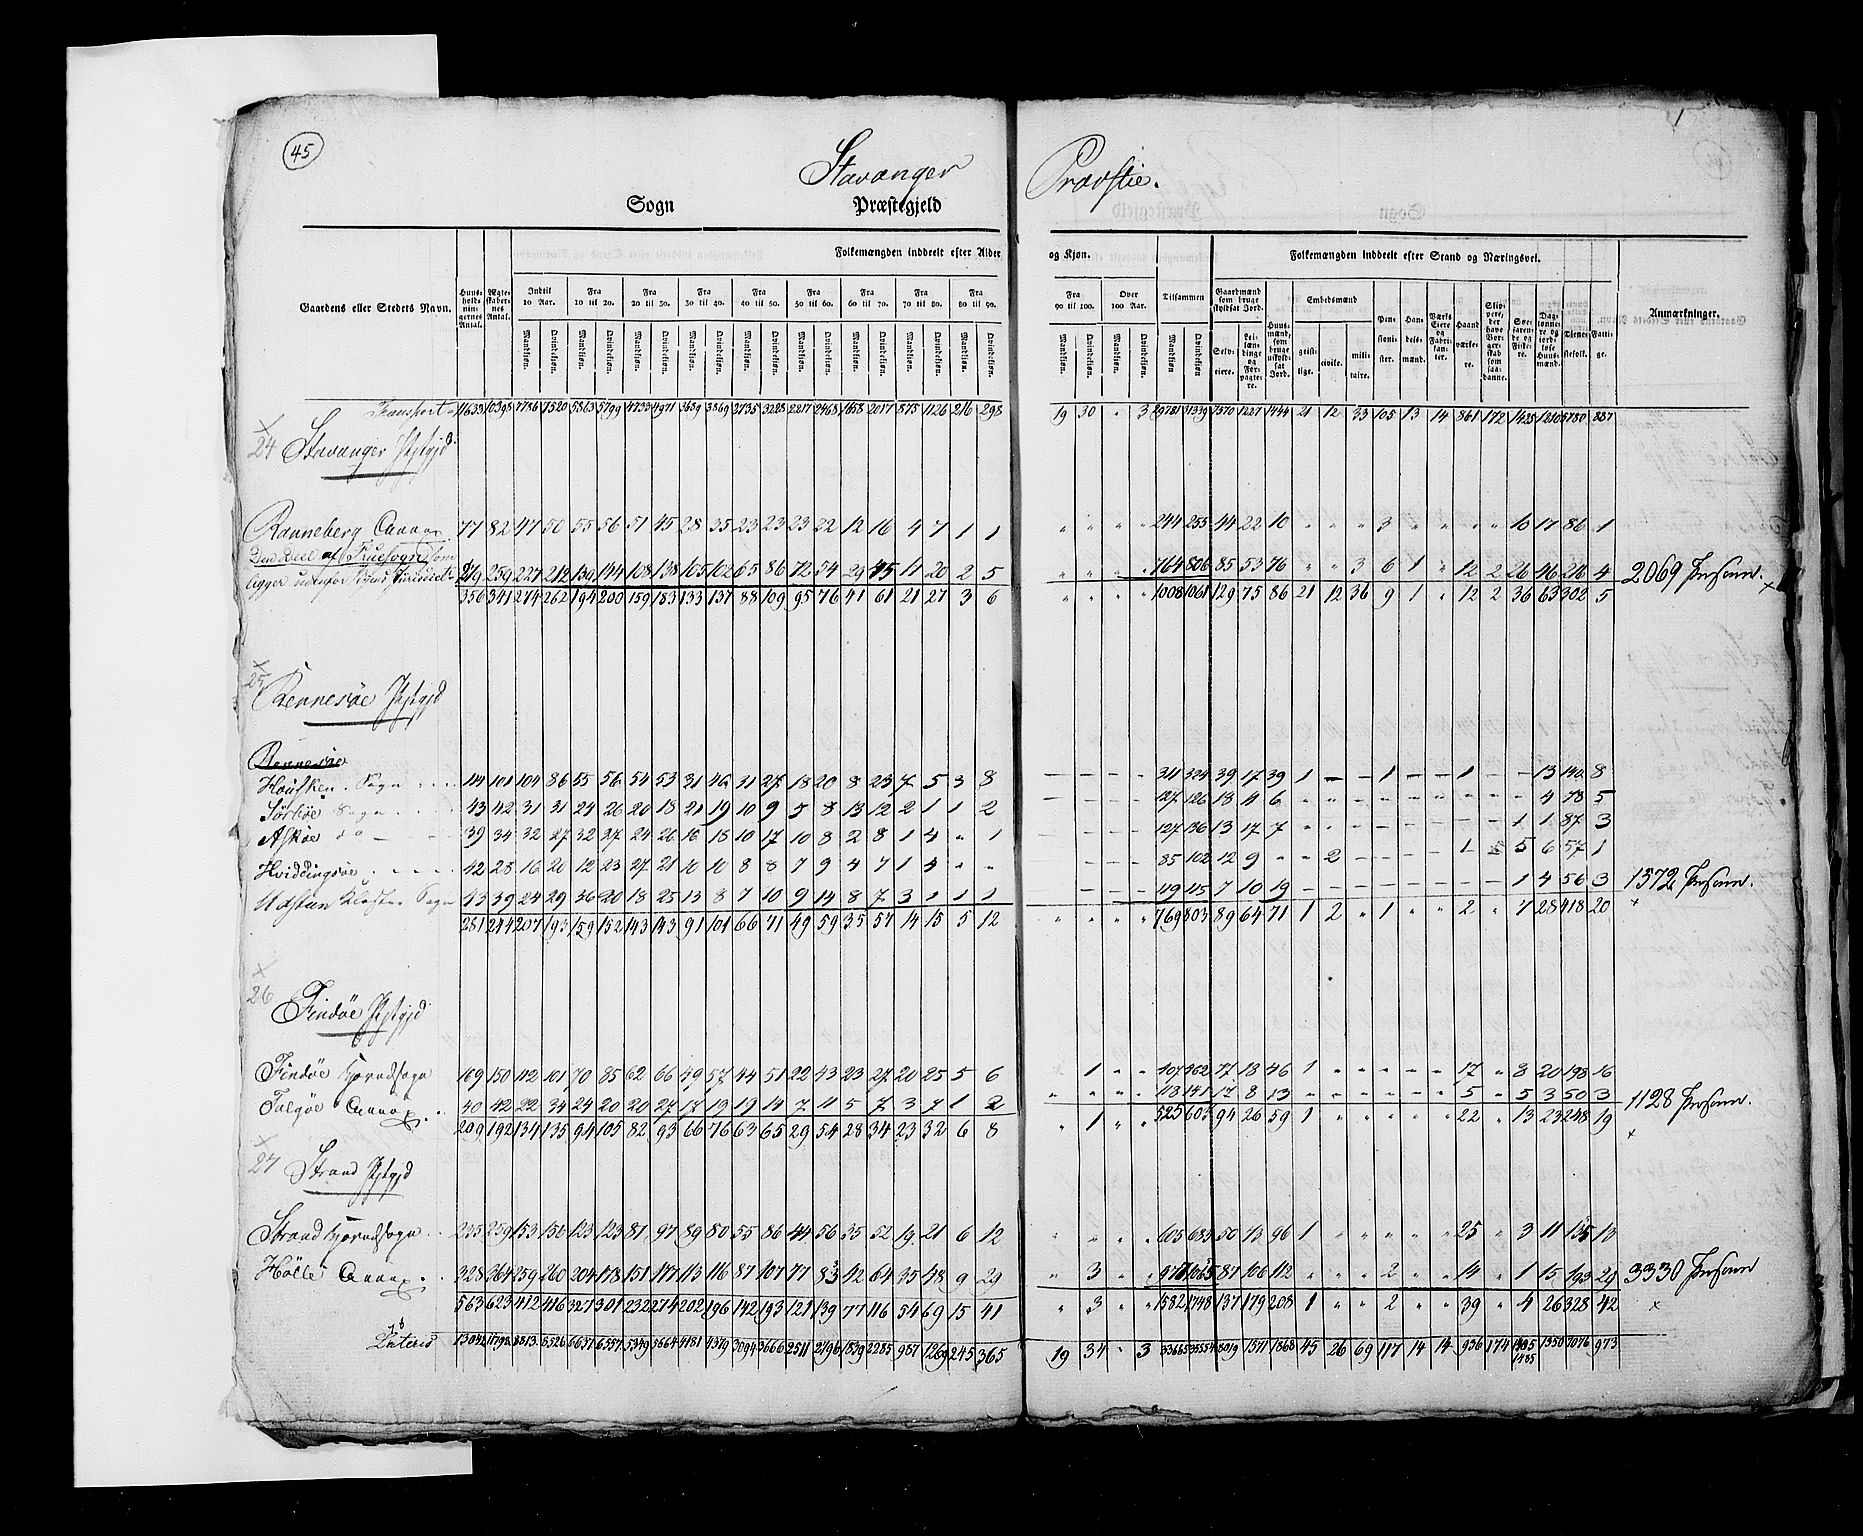 45
Stavanger Provstie.
Sogn Præstegjeld
Gaardens eller Stedets Navn.
Huusholdningernes Antal.
Ægteskabernes Antal.
Folkemængden inddeelt efter Alder og Kjøn.
Indtil 10 Aar. Fra 10 til 20. Fra 20 til 30. Fra 30 til 40. Fra 40 til 50. Fra 50 til 60. Fra 60 til 70. Fra 70 til 80. Fra 80 til 90. Fra 90 til 100. Over 100 Aar. Tilsammen
Mandkjøn. Qvindekjøn.
Folkemængden inddeelt efter Stand og Næringsvei.
Gaardmænd som bruge skyldsat Jord.
Selveiere. Leilændinge og Forpagtere.
Huusmænd, som bruge uskyldsat Jord.
Embedsmænd
geistlige. civile. militaire.
Pensionister.
Handelsmænd.
Værks Eiere og Fabrikanter.
Haandværkere.
Søefarende og Fiskere.
Tjenestefolk.
Fattige.
Anmærkninger.
Transport 11633 10398 7786 7520 5863 5799 4733 4971 3689 3869 2735 3228 2217 2468 1658 2017 875 1126 216 298 19 30 " 3 29781 31339 7570 1227 1444 21 12 33 105 13 14 861 172 1425 1210 5780 887
24 Stavanger Pstgjd
Ranneberg Annex 77 82 47 50 55 56 51 45 28 35 23 23 23 22 12 16 4 7 1 1 " " " " 244 255 44 22 10 " " " 3 " " " " 10 17 86 1
Den Deel af Fruesogn som
ligger udenfor Byens 219 259 227 212 139 144 108 138 105 102 65 86 72 54 29 45 17 20 2 5 " " " " 764 806 85 53 76 " " 3 6 1 " 12 2 26 46 216 4 2069 Personer.
356 341 274 262 194 200 159 183 133 137 88 109 95 76 41 61 21 27 3 6 " " " " 1008 1061 129 75 86 21 12 36 9 1 " 12 2 36 63 302 5
25 Rennesøe Pstgjd
Rennesøe
Hausken Sogn 114 101 104 86 55 56 54 53 31 46 31 27 18 20 8 23 7 5 3 8 - - - - 311 324 39 17 39 1 - - 1 - - 1 - - 13 140 8
Sørbøe Sogn 43 42 31 31 24 26 20 18 21 19 10 9 5 8 13 12 2 1 1 2 127 126 18 4 6 4 78 5
Askøe do 39 34 32 27 32 27 24 26 16 18 10 17 10 8 2 8 1 4 " 1 127 136 13 17 7 1 1 87 3
Hviddingsøe 42 28 16 20 12 23 27 21 10 10 8 8 7 9 4 7 1 4 " " 85 102 12 9 " " 2 1 5 6 57 1
Udstein Kloster Sogn 43 39 24 29 36 20 18 25 13 8 7 10 9 14 8 7 3 1 1 1 119 115 7 10 19 1 4 56 3 1572 Personer.
281 244 207 193 159 152 143 143 91 101 66 71 49 59 35 57 14 15 5 12 " " " " 769 803 89 64 71 1 2 " 1 " " 2 " 7 28 418 20
26 Findøe Pstgjd
Findøe Hovedsogn 169 150 112 101 70 85 62 66 49 57 44 51 22 43 23 27 20 25 5 6 " 1 " " 407 462 77 18 46 1 17 " 8 20 198 16
Talgøe Annex 40 42 22 34 24 20 20 27 17 19 19 14 7 11 5 7 3 7 1 2 118 141 17 8 13 5 " 5 3 50 3 1128 Personer.
209 192 134 135 94 105 82 93 66 76 63 65 29 54 28 34 23 32 6 8 " 1 " " 525 603 94 26 59 1 22 " 13 23 248 19
27 Strand Pstgjd
Strand Hovedsogn 235 259 153 156 123 123 81 97 89 80 55 86 44 56 35 52 19 21 6 12 605 683 50 73 96 1 25 " 3 11 135 13
Hølle Annex 328 364 259 260 204 178 151 177 113 116 87 107 77 83 42 64 35 48 9 29 " 3 " " 977 1065 87 106 112 2 14 " 1 15 193 29 3330 Personer
563 623 412 416 327 301 232 274 202 196 142 193 121 139 77 116 54 69 15 41 " 3 " " 1582 1748 137 179 208 1 " " 2 " " 39 " 4 26 328 42
Lateris 13042 11798 8813 8526 6637 6557 5349 5664 4181 4379 3094 3666 2511 2796 1839 2285 987 1269 245 365 19 34 " 3 33665 35554 8019 1571 1868 45 26 69 117 14 14 936 174 1485 1350 7076 973
1485